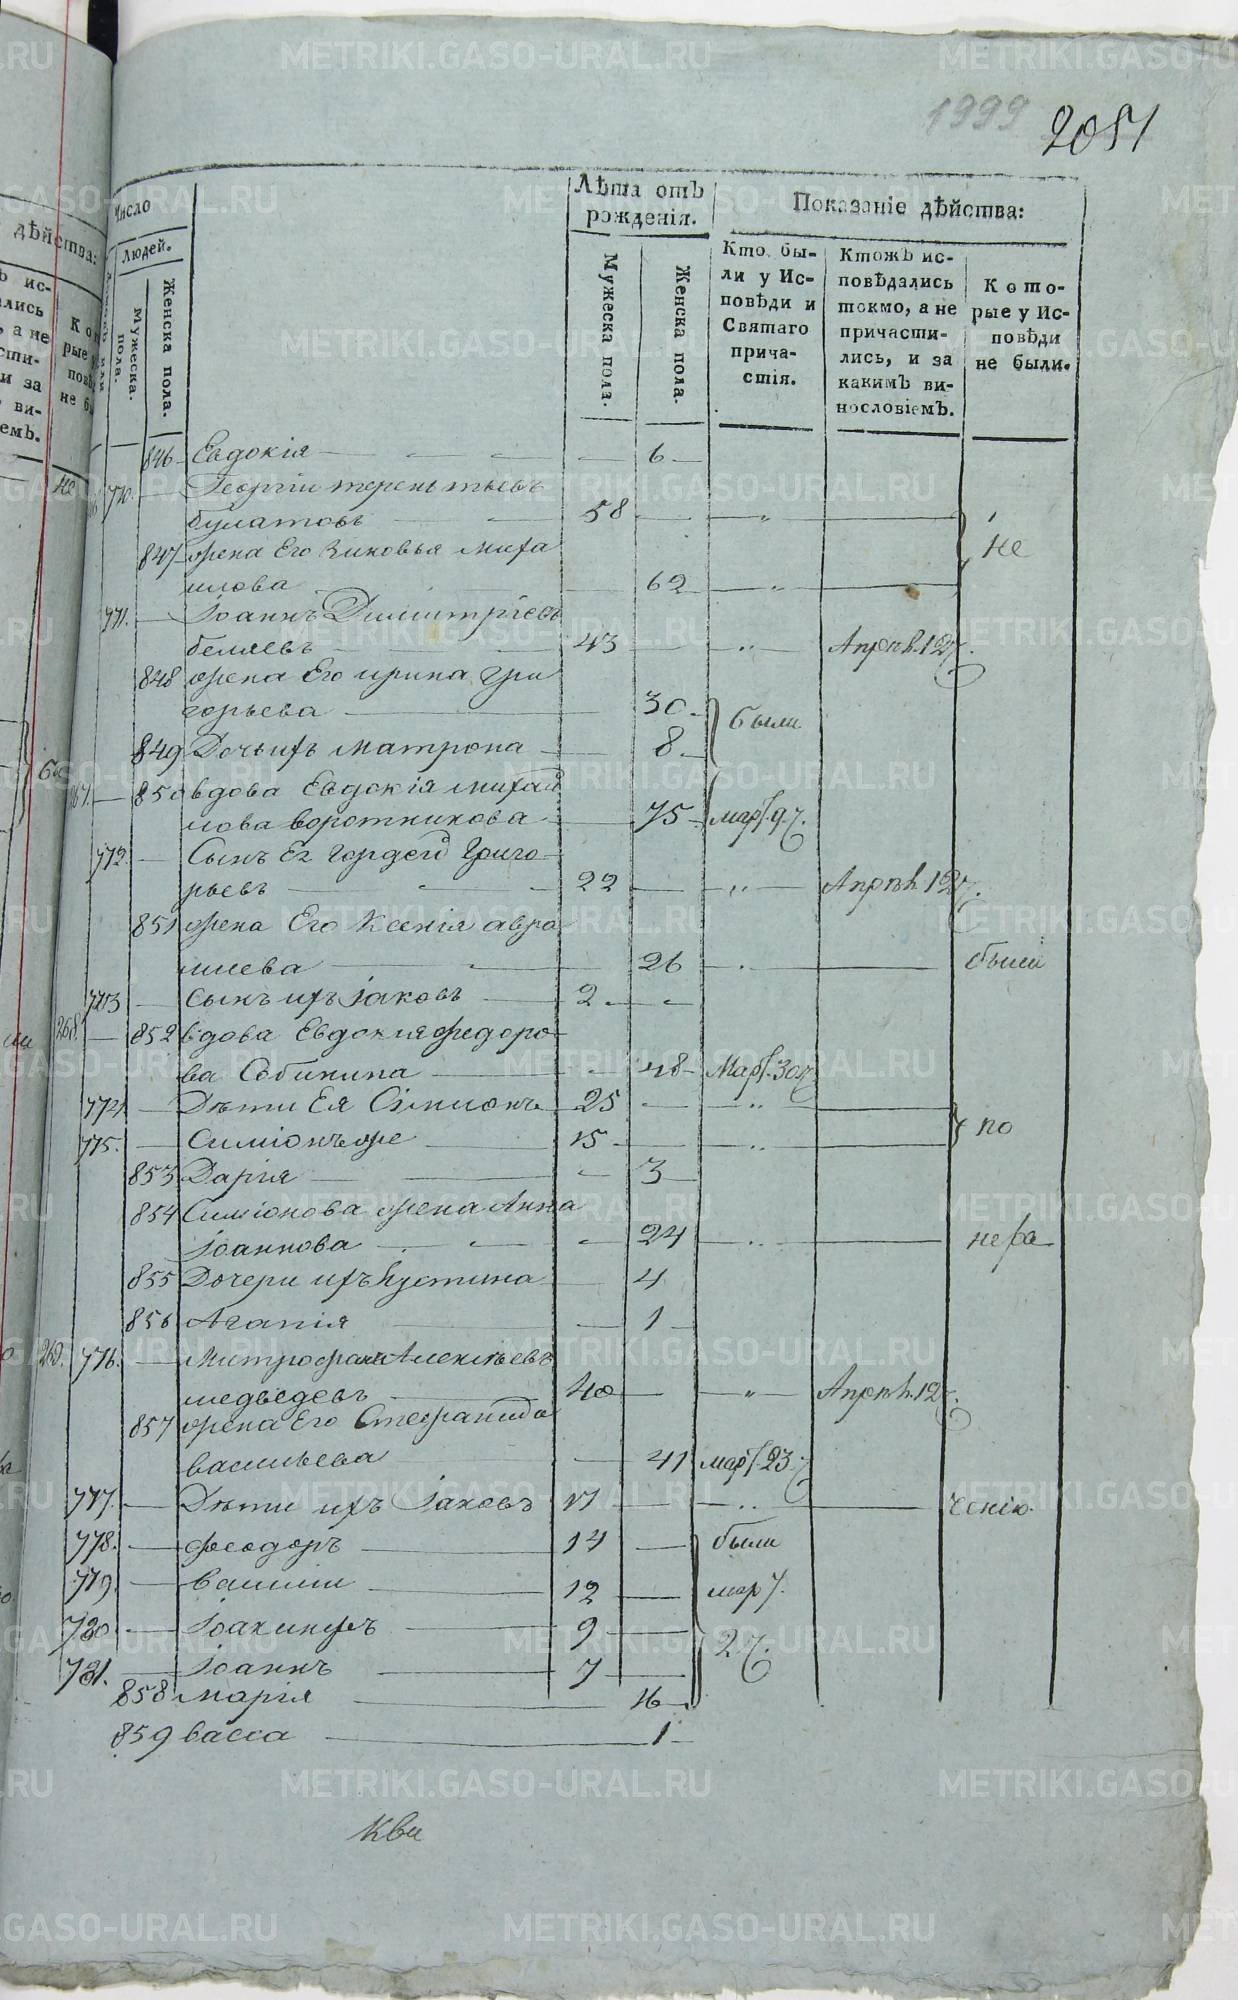 1999 2051
Число
Людей.
Мужеска. пола.
Женска пола.
Лѣта отъ рожденія.
Мужеска пола.
Женска пола.
Показаніе дѣйства:
Кто бы-
ли у Ис-
повѣди и
Святаго
прича-
стія.
Ктожъ ис-
повѣдались
токмо, а не
причасти-
лись, и за
какимъ ви-
нословіемъ.
Кото-
рые у Ис-
повѣди
не были.
846 Евдокія 6
770. Георгіи терентьевъ
булатовъ 58 „
847 жена Его Зиновья миха
илова 62 „ не
771. Іоаннъ Димитріевъ
беляевъ 43 „ Апрѣл. 12
848 жена Его ирина гри
горьева 30
849 Дочь ихъ матрона 8 были
267. 850 вдова Евдокія михаи
лова воротникова 75 мар. 9
772. Сынъ Ея гордей григо
рьевъ 22 „ Апрѣл. 12
851 жена Его Ксенія авра
миева 26 были
773 Сынъ ихъ Іаковъ 2
268. 852 вдова Евдокия федоро
ва Собинина 48 Мар. 30
774 Дѣти Ея Симионъ 25 „
775. Симіонъ же 15 „ по
853 Дарія 3
854 Симіонова жена Анна
Іоаннова 24 „ нера
855 Дочери ихъ Іустина 4
856 Агапія 1
269. 776. Митрофанъ Алексѣевъ
медведевъ 40 „ Апрѣл. 12
857 жена Его Стефанида
васильева 41 мар. 23
777. Дѣти ихъ Іаковъ 17 „ ченію.
778. феодоръ 14 были
779. василии 12 мар
780. Іоакинфъ 9 27.
781. Іоаннъ 7
858 марія 16
859 васса 1